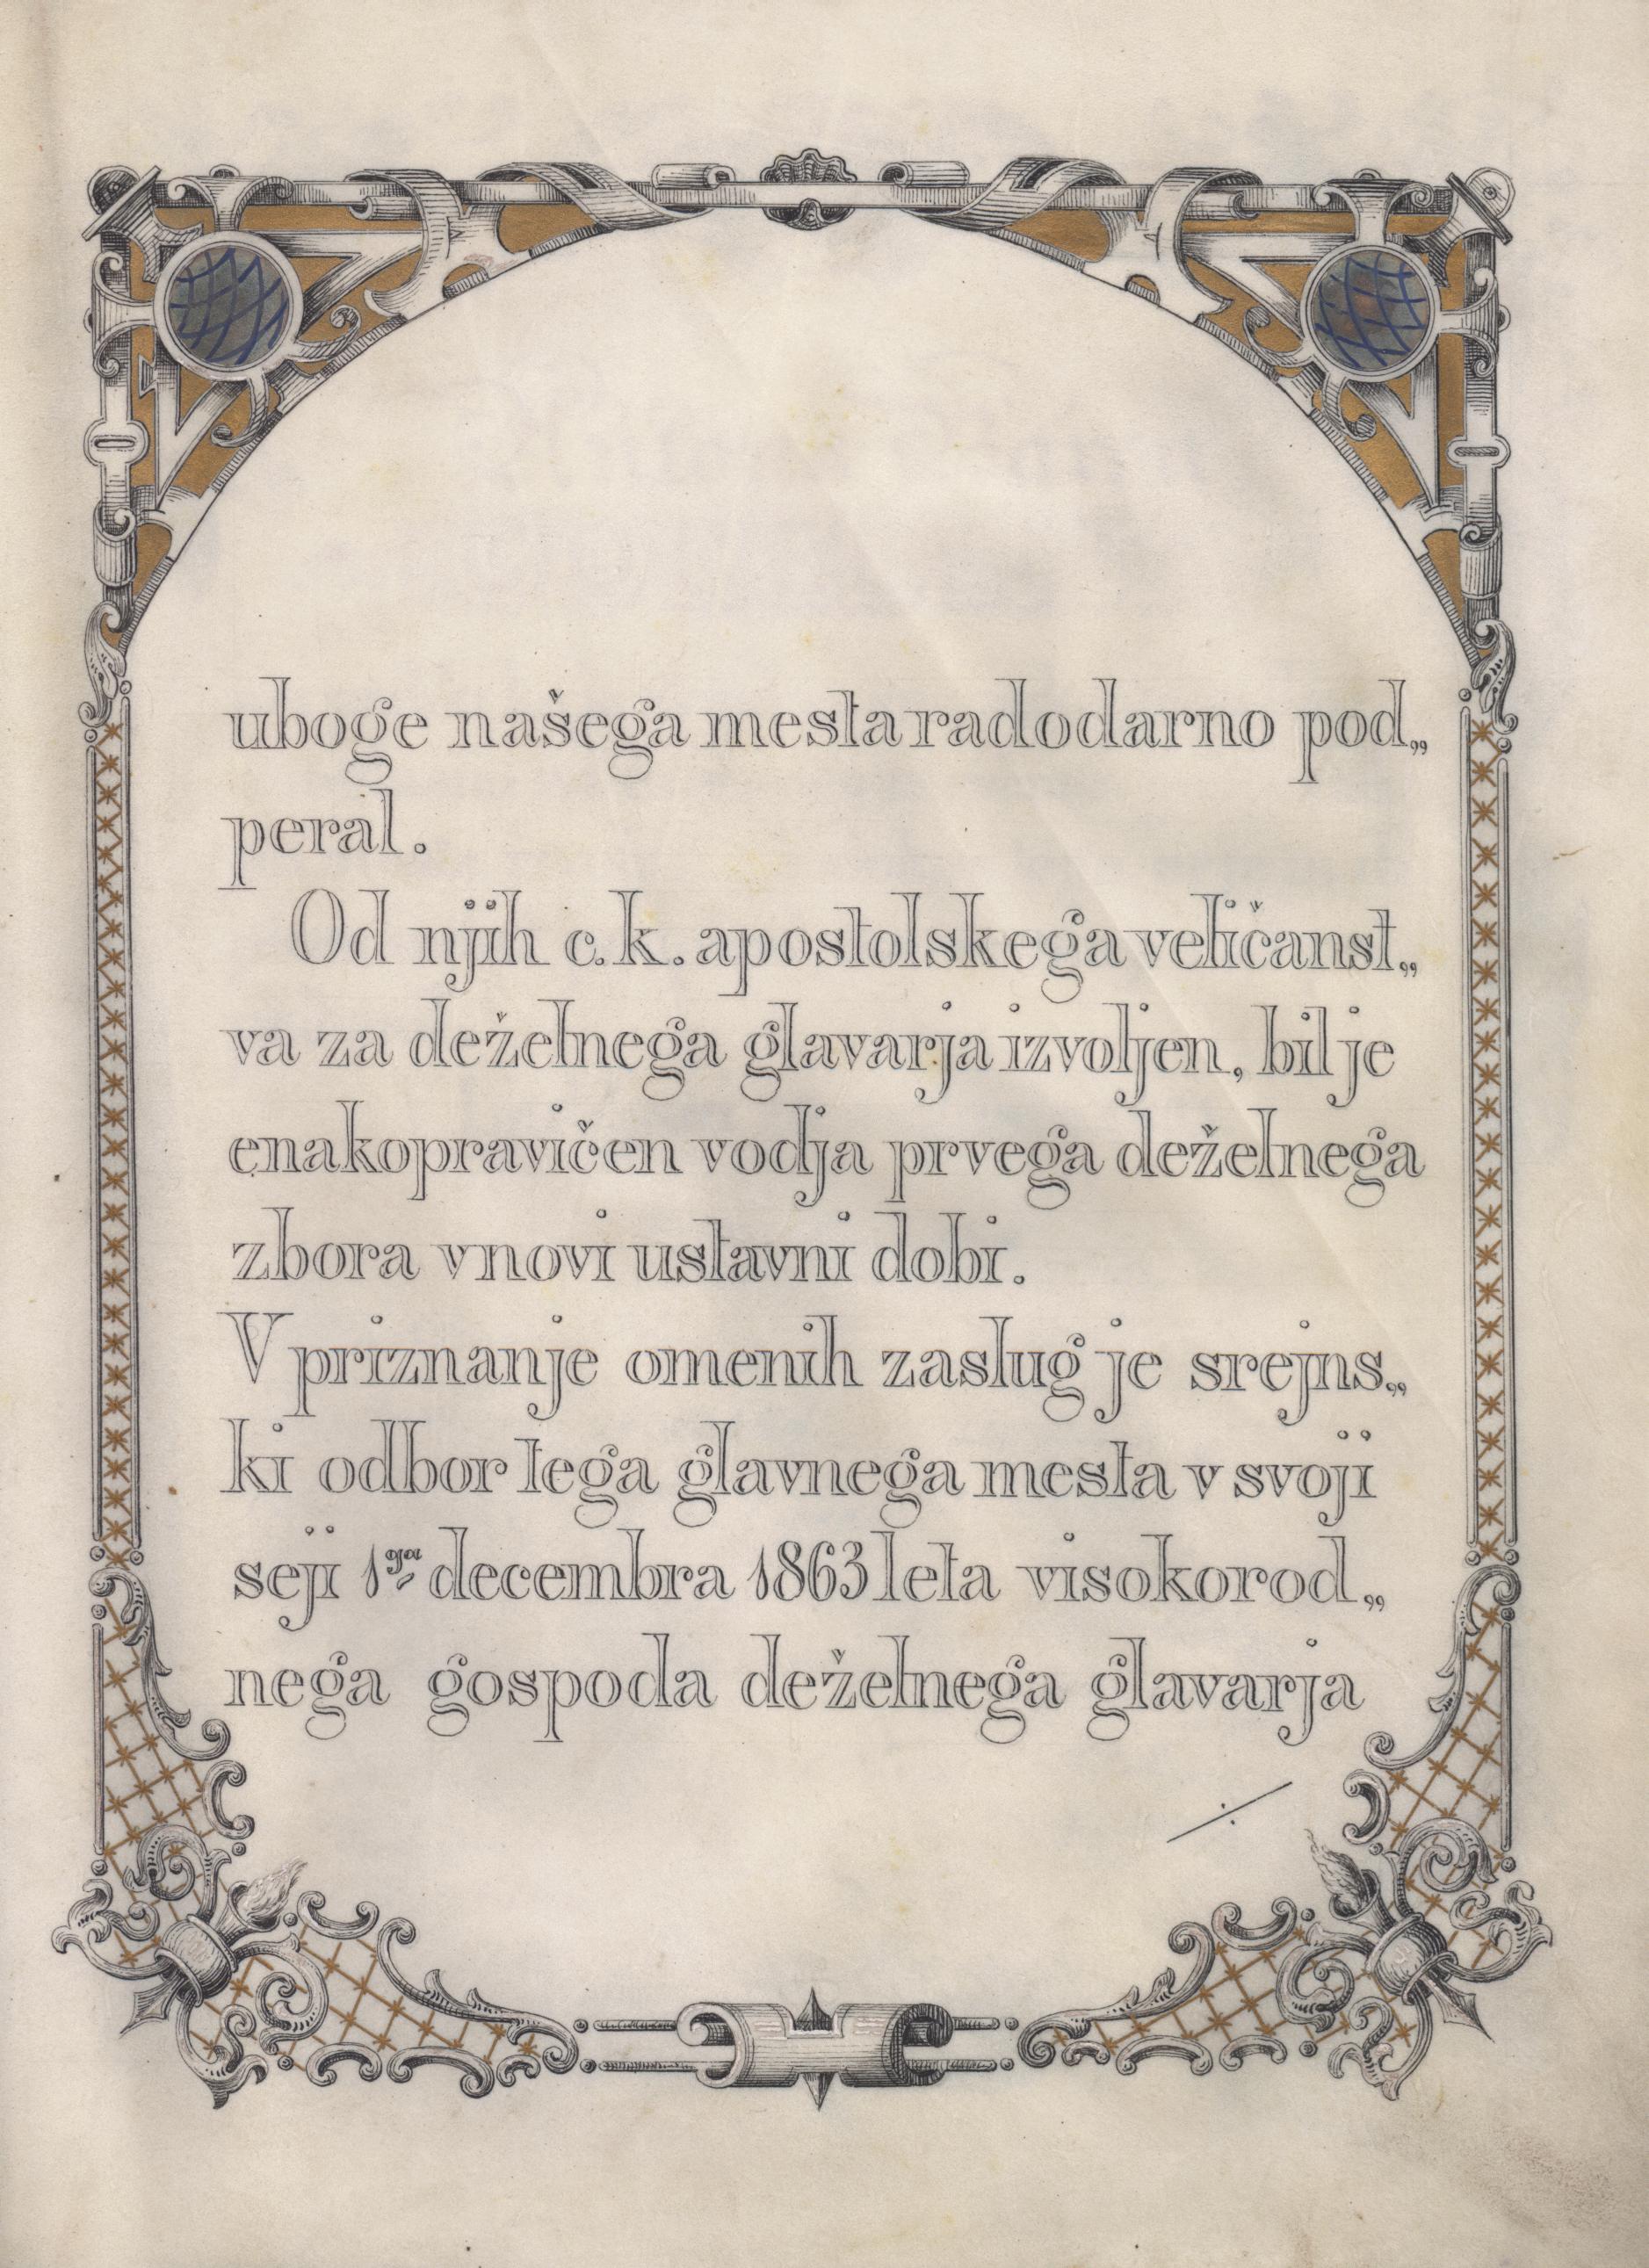 uboge našega mesta radodarno pod„
peral.
Od njih c. k. apostolskega veličanst„
va za deželnega glavarja izvoljen, bil je
enakopravičen vodja prvega deželnega
zbora v novi ustavni dobi.
V priznanje omenih zaslug je srejns„
ki odbor tega glavnega mesta v svoji
seji 1ga decembra 1863 leta visokorod„
nega gospoda deželnega glavarja